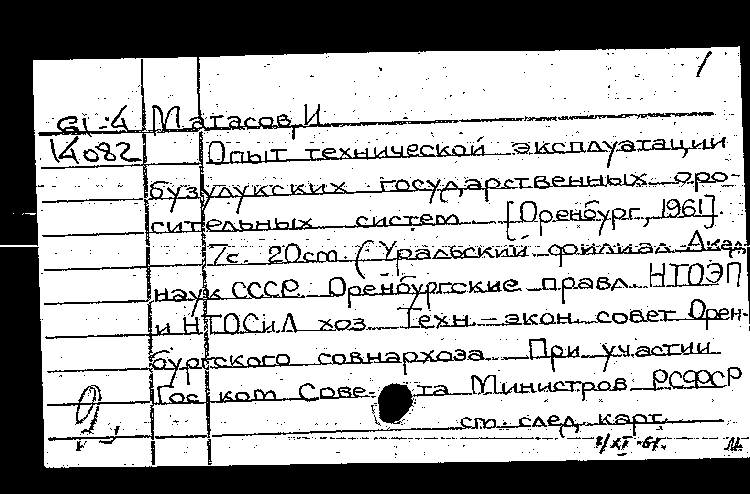 1
61-4 Матасов, И.
14082 Опыт технической эксплуатации
бузулукских государственных оро-
сительных систем. [Оренбург, 1961].
7с. 20см. (Уральский филиал Акад.
наук СССР. Оренбургские правл. НТОЭП
и НТОСиЛ хоз. Техн.-экон. совет Орен-
бургского совнархоза. При участии
Гос ком Сове-та Министров РСФСР
см. след. карт.